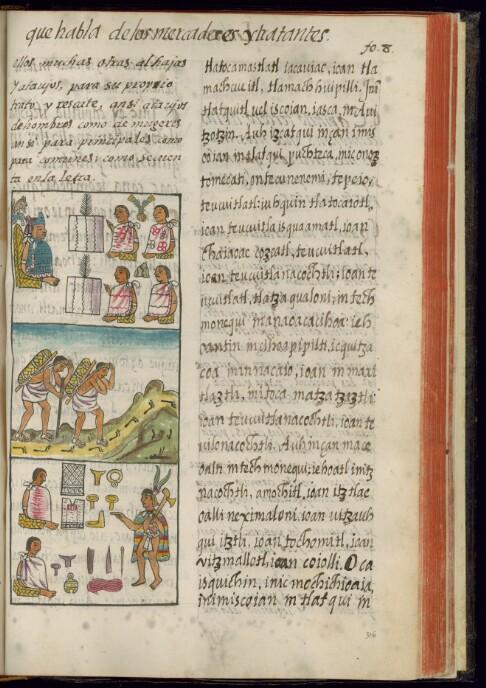 que habla de los mercaderes y tratantes.
fo. 8.
ellos muchas otras alhajas
y atauios, para su proprio
trato y rescate, ansi atauios
de hombres como de mugeres
ansi para principales como
para comunes: como se cuen
ta en la letra.
tlatocamaxtlatl iacauiac, ioan tla
machcueitl, tlamachhuipilli. Ini
tlatquitl vel iscoian, iasca, in Aui
tzotzin. Auh izcatqui in çan inmis
coian intlatqui, puchteca, inic onoz
tomecati, ontecunenemi, tepeio,
teucuitlatl: iuhquin tlatocaiotl,
ioan teucuitlaisquaamatl, ioan
chaiaoac cozcatl, teucuitlatl,
ioan teucuitlanacochtli: ioan te
ucuitlatl, tlatzaqualoni, in tech
monequi
oantin in cihoapipilti, ic quitza
coa ioan in maxi
tlaztli, mitoca matzatzaztli:
ioan teucuitlanacochtli, ioan te
uilonacochtli. Auh in çan mace
oalti in tech monequi; iehoatl initz
nacochtli, amochitl, ioan itztlae
oalli neximaloni, ioan uitzauh
qui itztli, ioan tochomitl, ioan
vitzmallotl, ioan coiolli. O ca
isquichin, inic mochichioaia,
inimiscoian in tlatqui in
316